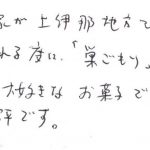 家が上伊那地方で
れる度に、「巣ごもり」
大好きなお菓子で
評です。